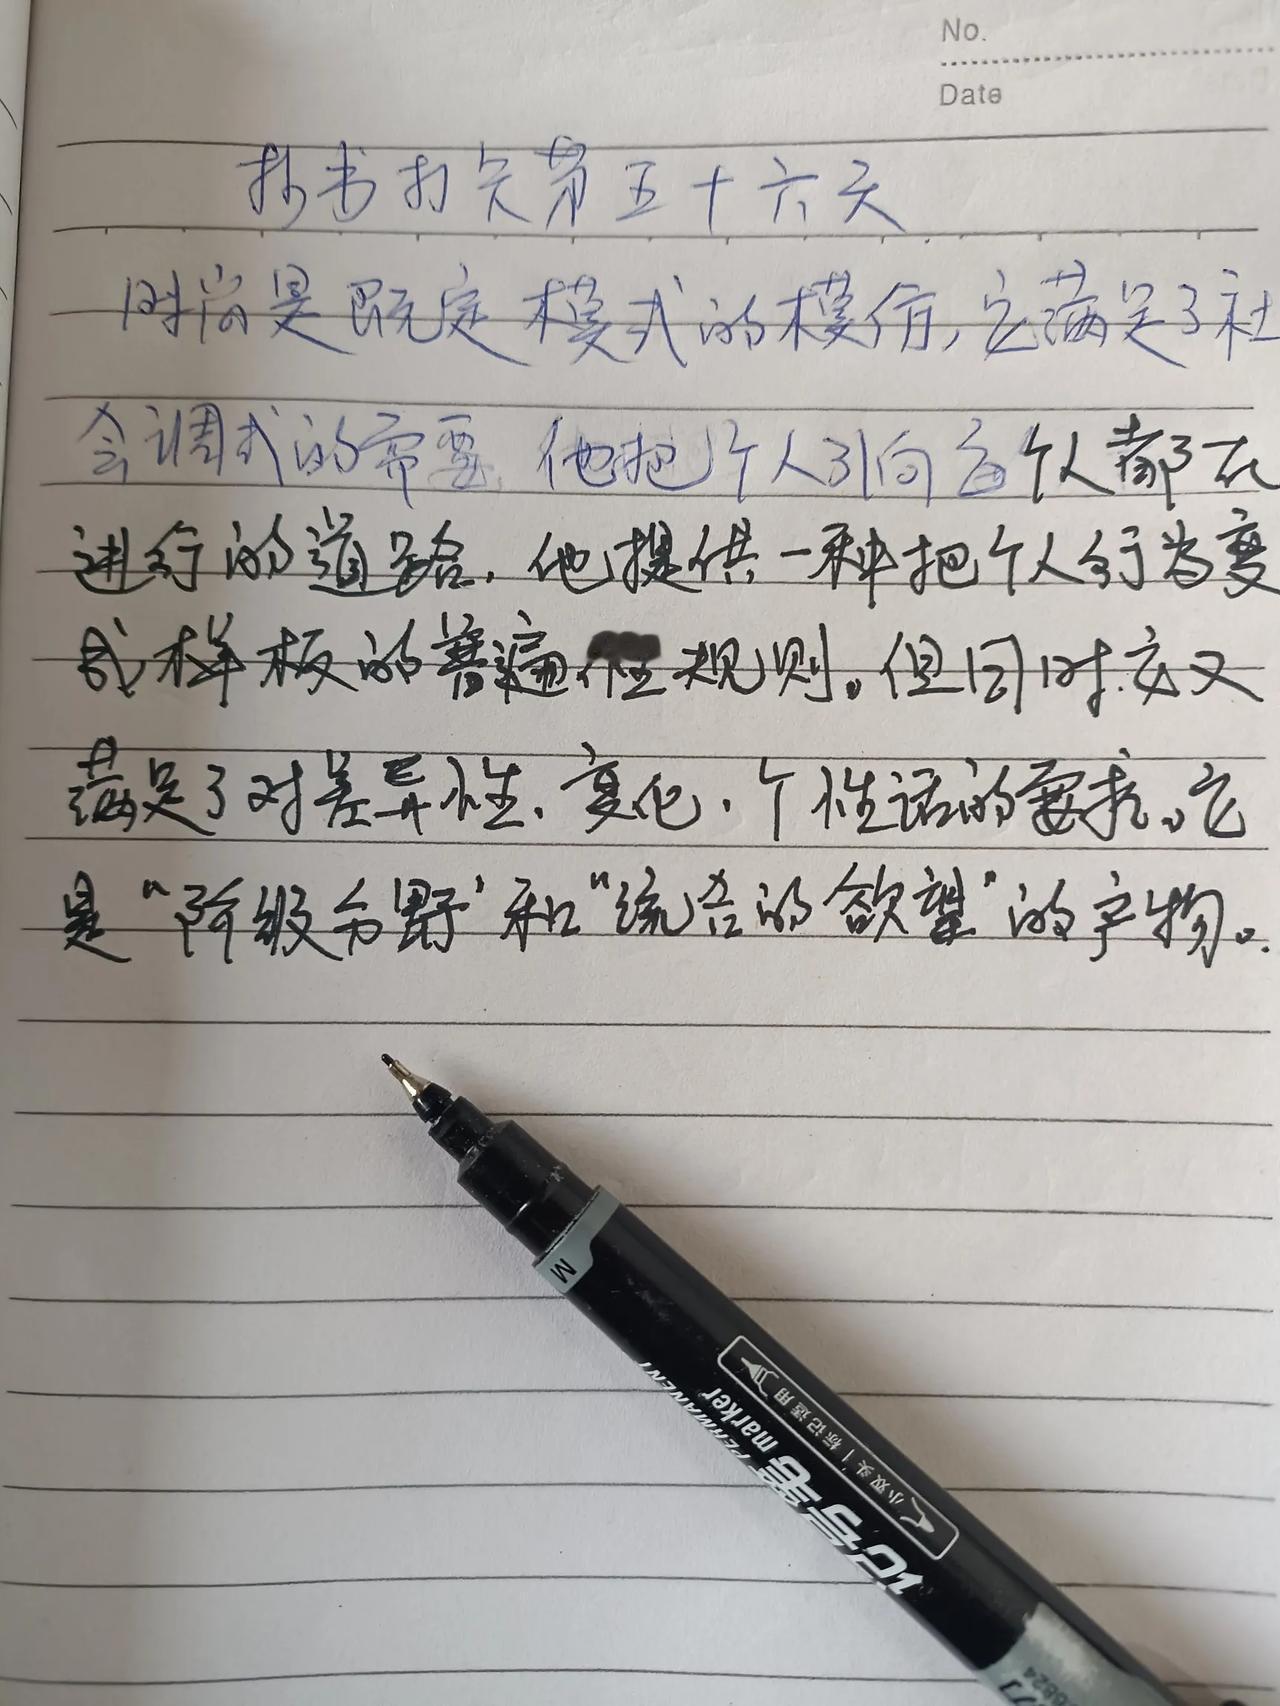 No.
Date
抄书打卡第五十六天
时尚是既定模式的模仿,它满足了社
会调式的需要,他把个人引向每个人都在
进行的道路,他提供一种把个人行为变
成样板的普遍性规则。但同时,它又
满足了对差异性、变化、个性话的要求。它
是“阶级分野”和“统合的欲望”的产物。
M
PERMANENT
marker
记号笔
小双头|标记适用
6824